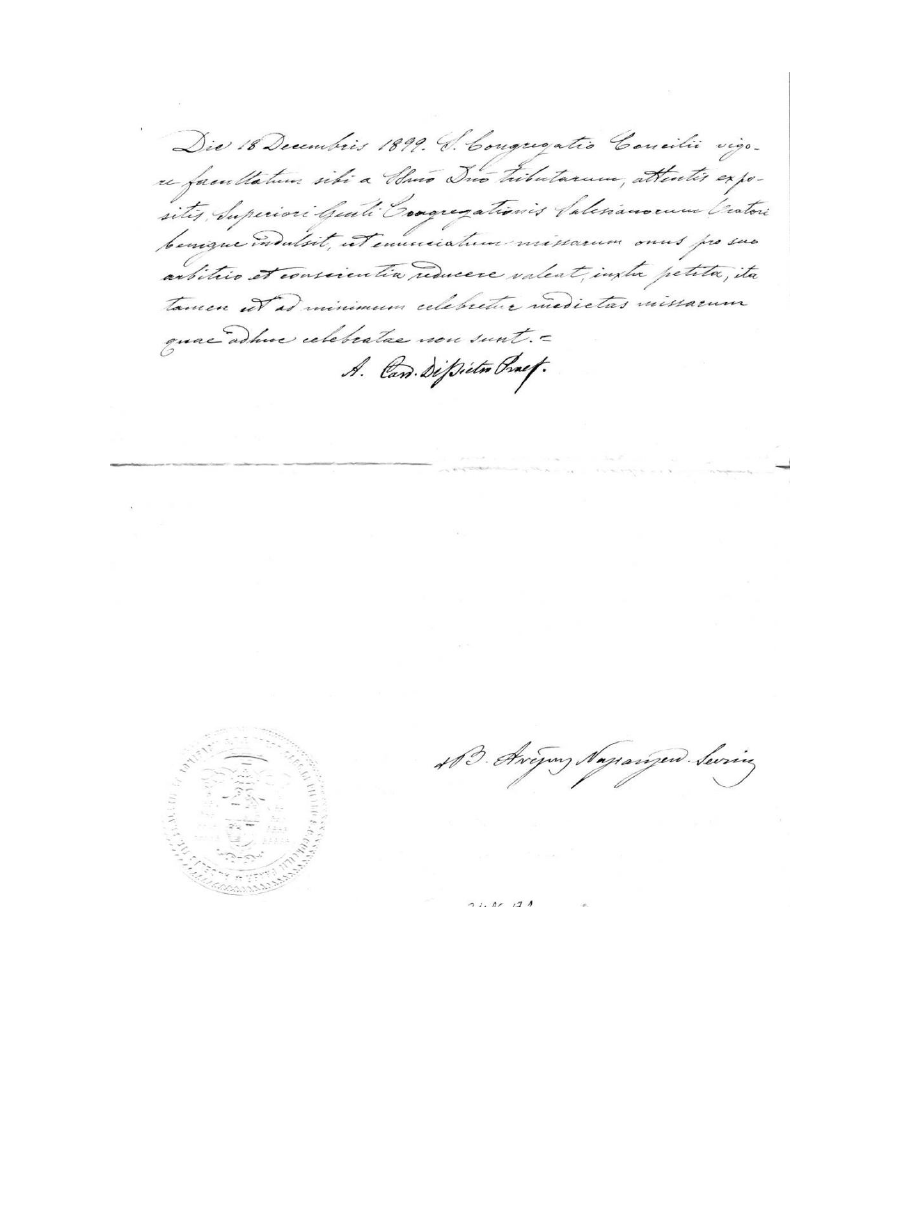 Die 18 Decembris 1899. S. Congregatio Concilii vigo-
re facultatum sibi a SSmo Dno tributarum, attentis expo-
sitis, Superiori Genli Congregationis Salesianorum Oratori
benigne indulsit, ut enunciatum missarum onus pro suo
arbitrio et conscientia reducere valeat, iuxta petita, ita
tamen ut ad minimum celebretur medietas missarum
quae adhuc celebratae non sunt. =
A. Card. Di Pietro Praef.
B. Archiep. Nazianzen.